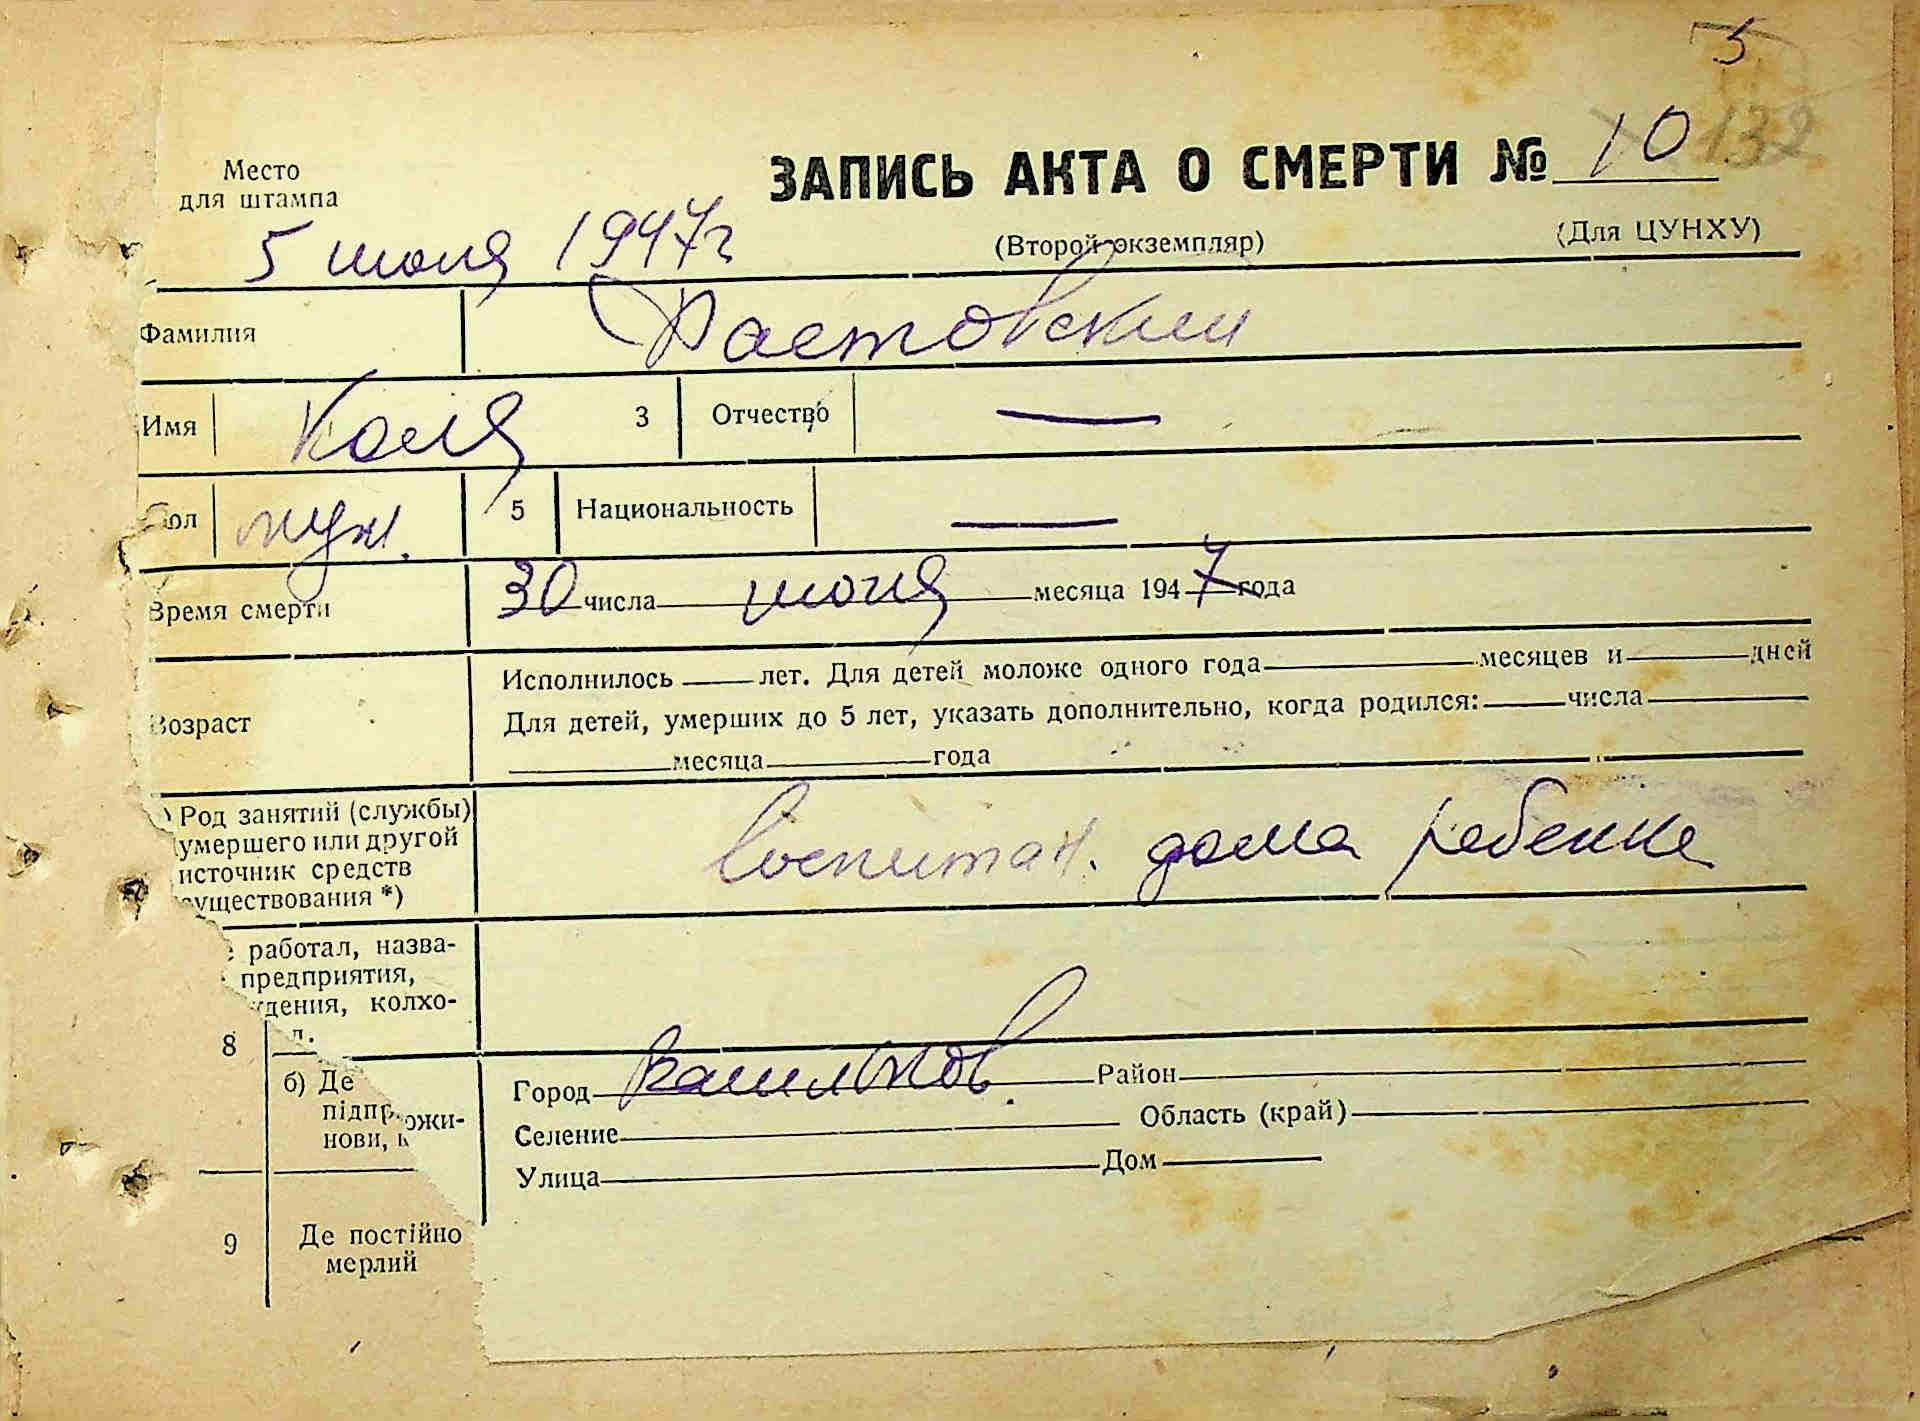 5
Место
для штампа
ЗАПИСЬ АКТА О СМЕРТИ № 10
132
5 июля 1947 г
(Второй экземпляр)
(Для ЦУНХУ)
Фамилия Растовский
Имя Коля 3 Отчество —
Пол муж. 5 Национальность —
Время смерти 30 числа июня месяца 1947 года
Возраст
Исполнилось лет. Для детей моложе одного года месяцев и дней
Для детей, умерших до 5 лет, указать дополнительно, когда родился: числа
месяца года
) Род занятий (службы)
умершего или другой
источник средств
существования *)
воспитан. дома ребенка
е работал, назва-
предприятия,
ждения, колхо-
8
б) Де
підпр
нови, к
ожи-
Город Васильков. Район
Селение Область (край)
Улица Дом
9 Де постійно
мерлий